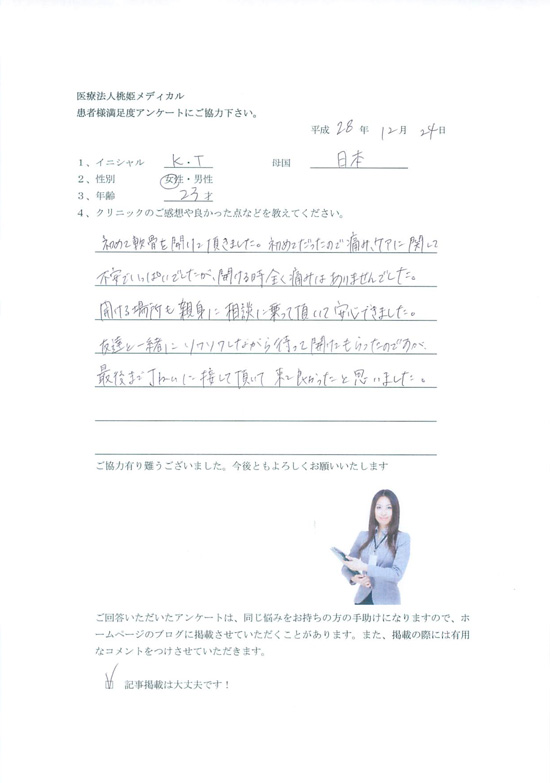 医療法人桃姫メディカル
患者様満足度アンケートにご協力下さい。
平成 28 年 12 月 24 日
1、イニシャル K・T 母国 日本
2、性別 女性・男性
3、年齢 23 才
4、クリニックのご感想や良かった点などを教えてください。
初めて軟骨を開けて頂きました。初めてだったので痛み、ケアに関して
不安でいっぱいでしたが、開ける時全く痛みはありませんでした。
開ける場所も親身に相談に乗って頂いて安心できました。
友達と一緒にソワソワしながら待って開けてもらったのですが、
最後まで丁ねいに接して頂いて来て良かったと思いました。
ご協力有り難うございました。今後ともよろしくお願いいたします
ご回答いただいたアンケートは、同じ悩みをお持ちの方の手助けになりますので、ホ
ームページのブログに掲載させていただくことがあります。また、掲載の際には有用
なコメントをつけさせていただきます。
☑ 記事掲載は大丈夫です！